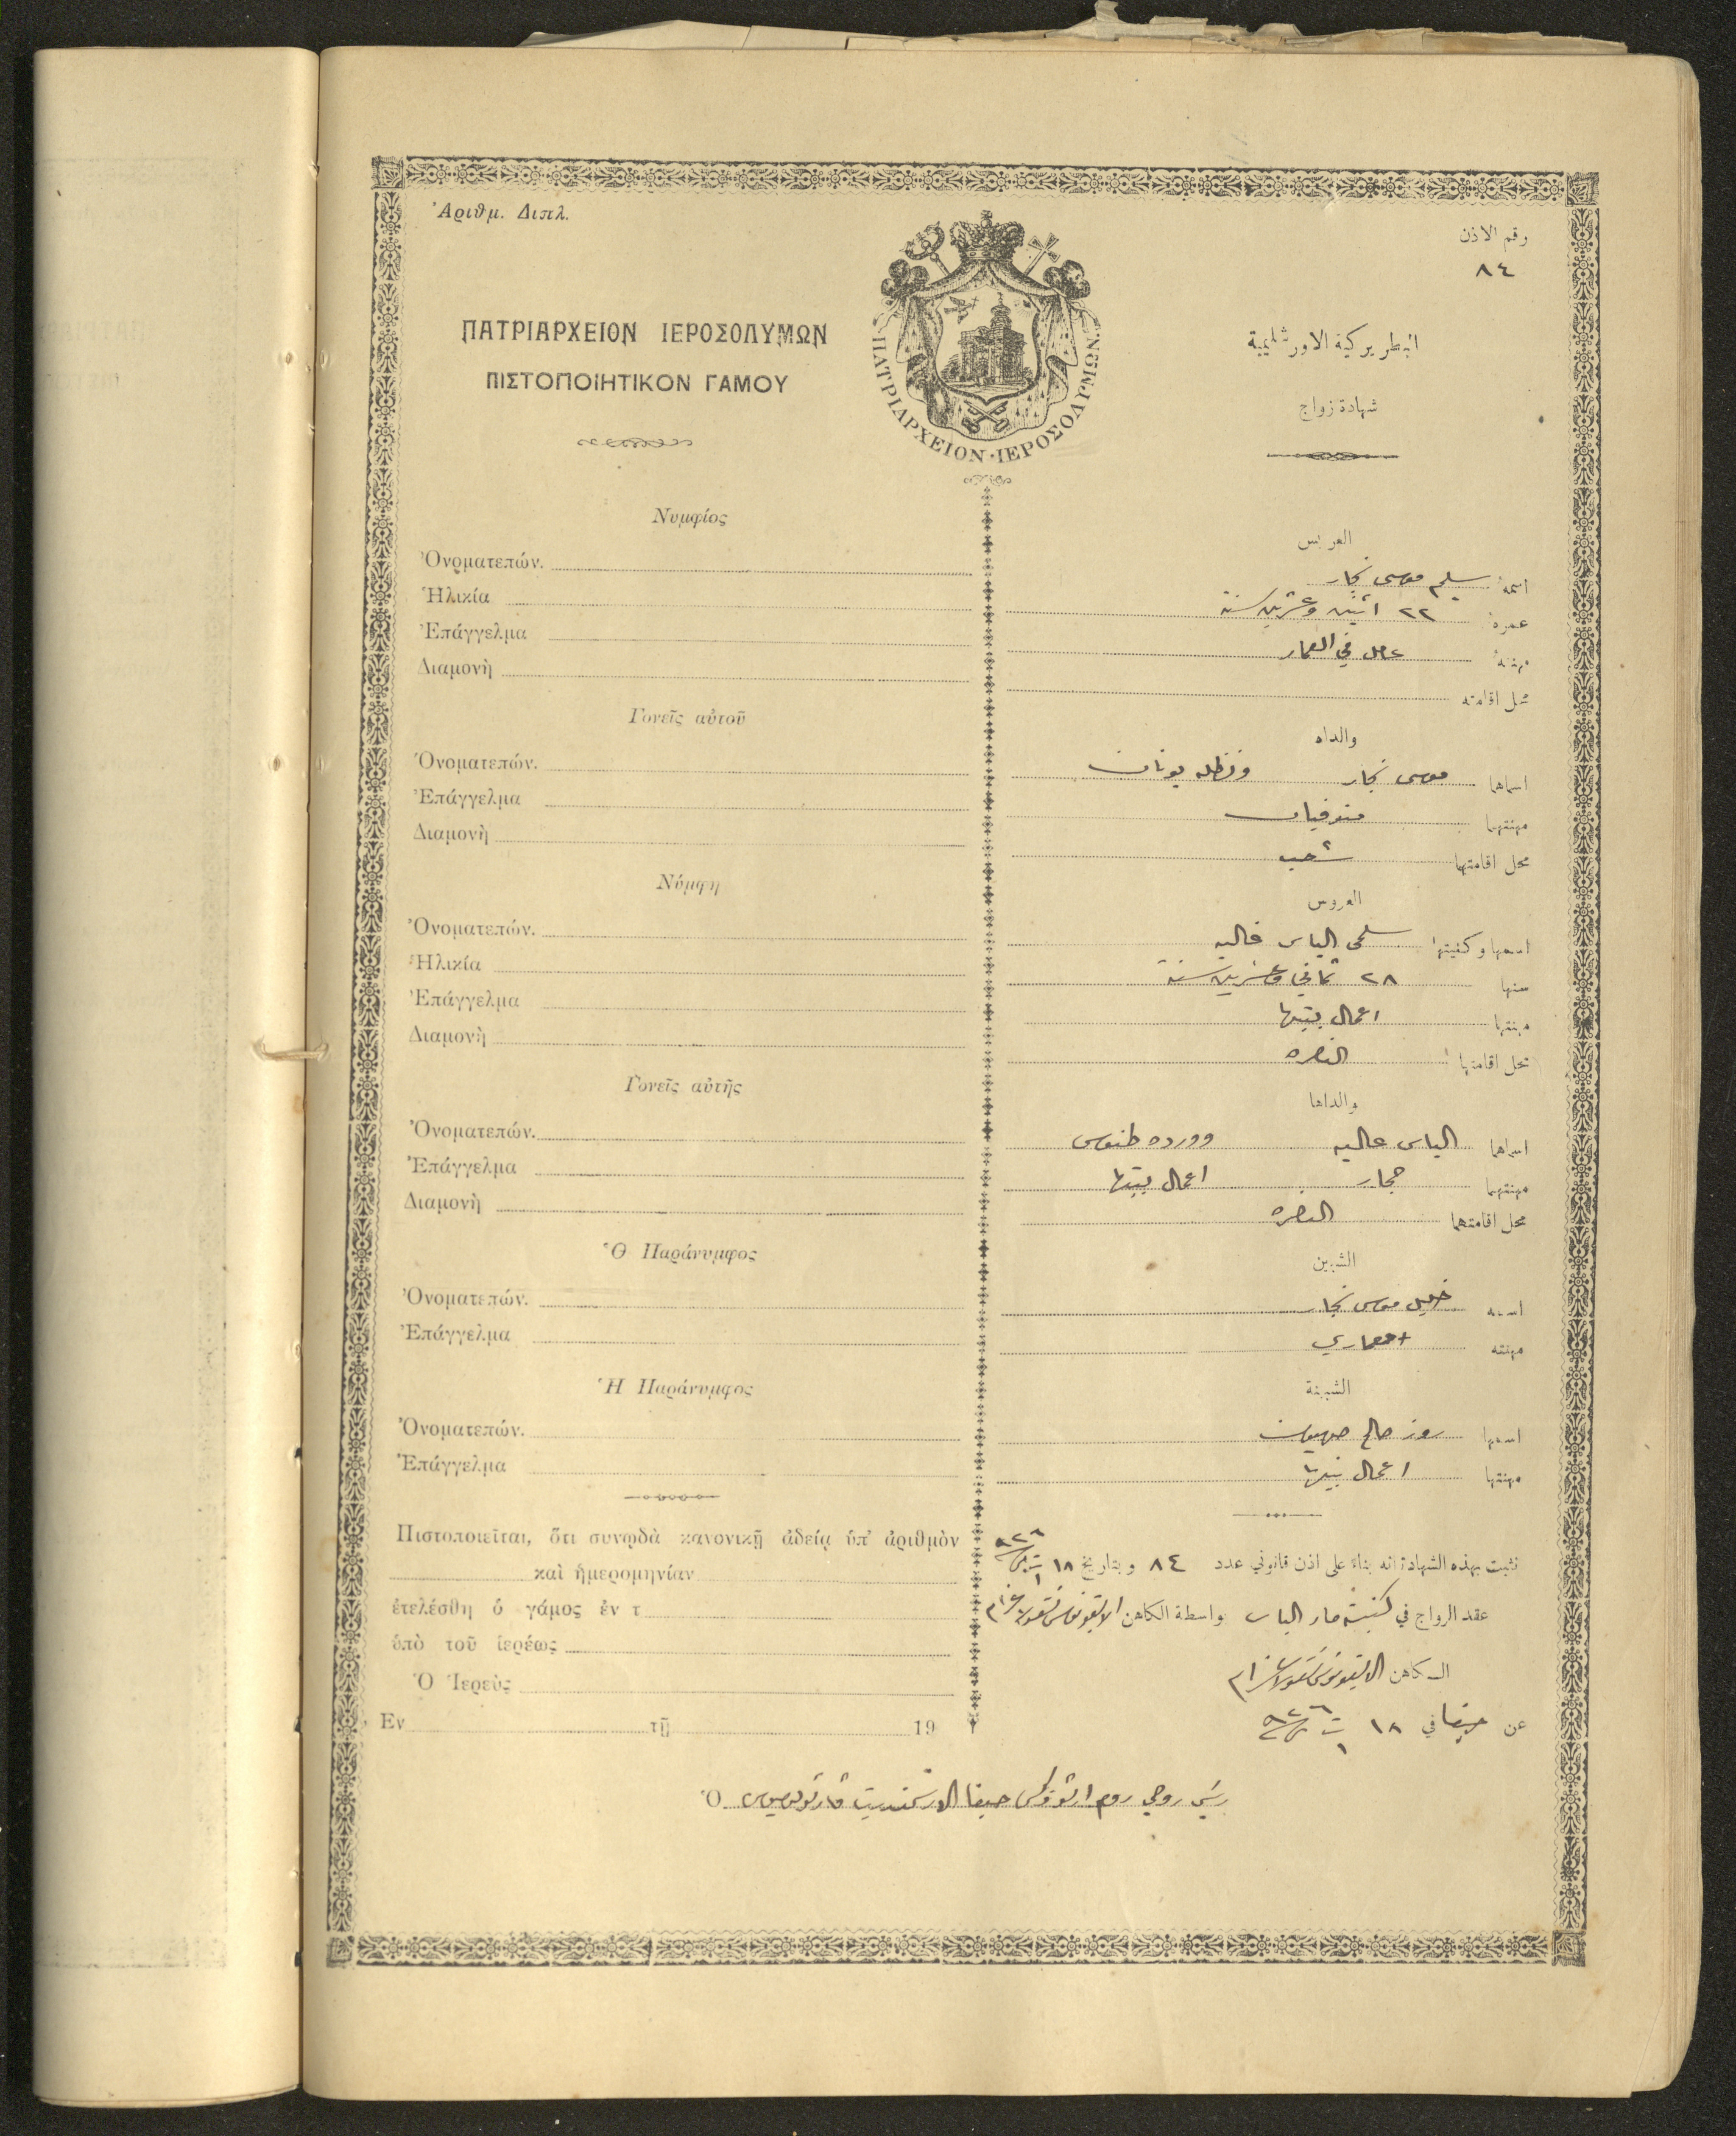 Ἀριθμ. Διπλ.
رقم الاذن
٨٤
ΠΑΤΡΙΑΡΧΕΙΟΝ ΙΕΡΟΣΟΛΥΜΩΝ
ΠΙΣΤΟΠΟΙΗΤΙΚΟΝ ΓΑΜΟΥ
ΠΑΤΡΙΑΡΧΕΙΟΝ·ΙΕΡΟΣΟΛΥΜΩΝ
البطريركية الاورشليمية
شهادة زواج
Νυμφίος
Ὀνοματεπών.
Ἡλικία
Ἐπάγγελμα
Διαμονὴ
Γονεῖς αὐτοῦ
Ὀνοματεπών.
Ἐπάγγελμα
Διαμονὴ
Νύμφη
Ὀνοματεπών.
Ἡλικία
Ἐπάγγελμα
Διαμονὴ
Γονεῖς αὐτῆς
Ὀνοματεπών.
Ἐπάγγελμα
Διαμονὴ
Ὁ Παράνυμφος
Ὀνοματεπών.
Ἐπάγγελμα
Ἡ Παράνυμφος
Ὀνοματεπών.
Ἐπάγγελμα
Πιστοποιεῖται, ὅτι συνῳδὰ κανονικῇ ἀδείᾳ ὑπ' ἀριθμὸν
καὶ ἡμερομηνίαν
ἐτελέσθη ὁ γάμος ἐν τ
ὑπὸ τοῦ ἱερέως
Ὁ Ἱερεὺς
Ἐν τῇ 19
العريس
اسمه سليم موسى نجار
عمره ٢٢ اثنين وعشرين سنة
مهنته عامل في العمار
محل اقامته
والداه
اسماهما موسى نجار يونان
مهنتهما متوفيان
محل اقامتهما شعب
العروس
اسمها وكنيتها سلمى الياس
سنها ٢٨ ثماني وعشرين سنة
مهنتها اعمال بيتها
محل اقامتها الناصره
والداها
اسماهما الياس وورده طنوس
مهنتهما حجار اعمال بيتها
محل اقامتهما الناصره
الشبين
اسمه خليل موسى نجار
مهنته معماري
الشبينة
اسمها روز صالح صهيون
مهنتها اعمال بيتها
تثبت بهذه الشهادة انه بناء على اذن قانوني عدد ٨٤ وبتاريخ ١٨ ت١ ٩٢٦
عقد الزواج في كنيسة مار الياس بواسطة الكاهن
الكاهن
عن حيفا في ١٨ ت١ ٩٢٦
Ὁ رئيس روحي روم ارثوذكس حيفا